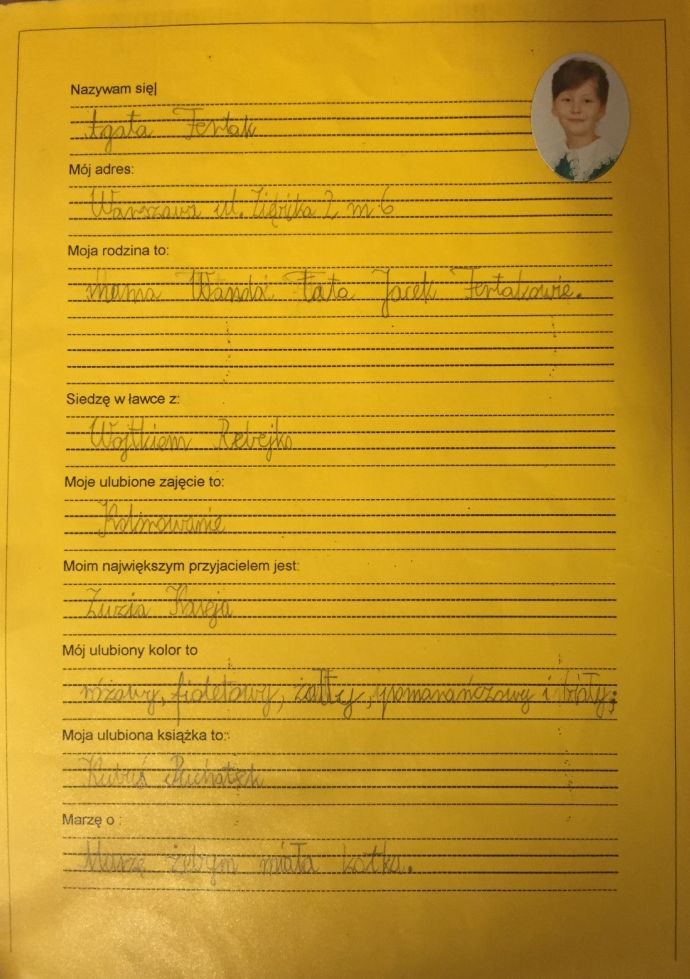 Nazywam się
Agata Fertak
Mój adres:
Warszawa ul. 2 m 6
Moja rodzina to:
mama Wanda tata Jacek Fertakowie.
Siedzę w ławce z:
Wojtkiem Rebejko
Moje ulubione zajęcie to:
Kolorowanie
Moim największym przyjacielem jest:
Zuzia
Mój ulubiony kolor to
różowy, fioletowy, żółty, pomarańczowy i biały;
Moja ulubiona książka to:
Kubuś Puchatek
Marzę o :
Marzę żebym miała kotka.